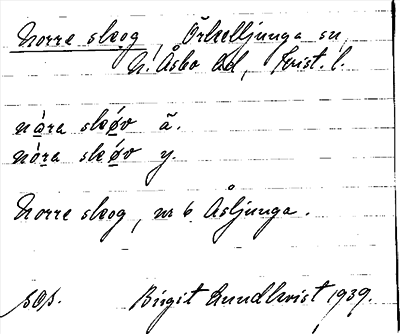 Norre skog, Örkelljunga sn,
N. Åsbo hd, Krist. l.
nȧra skǿv ã.
nȯra skǿv y.
Norre skog, nr 6 Åsljunga.
sos. Birgit Lundkvist 1939.